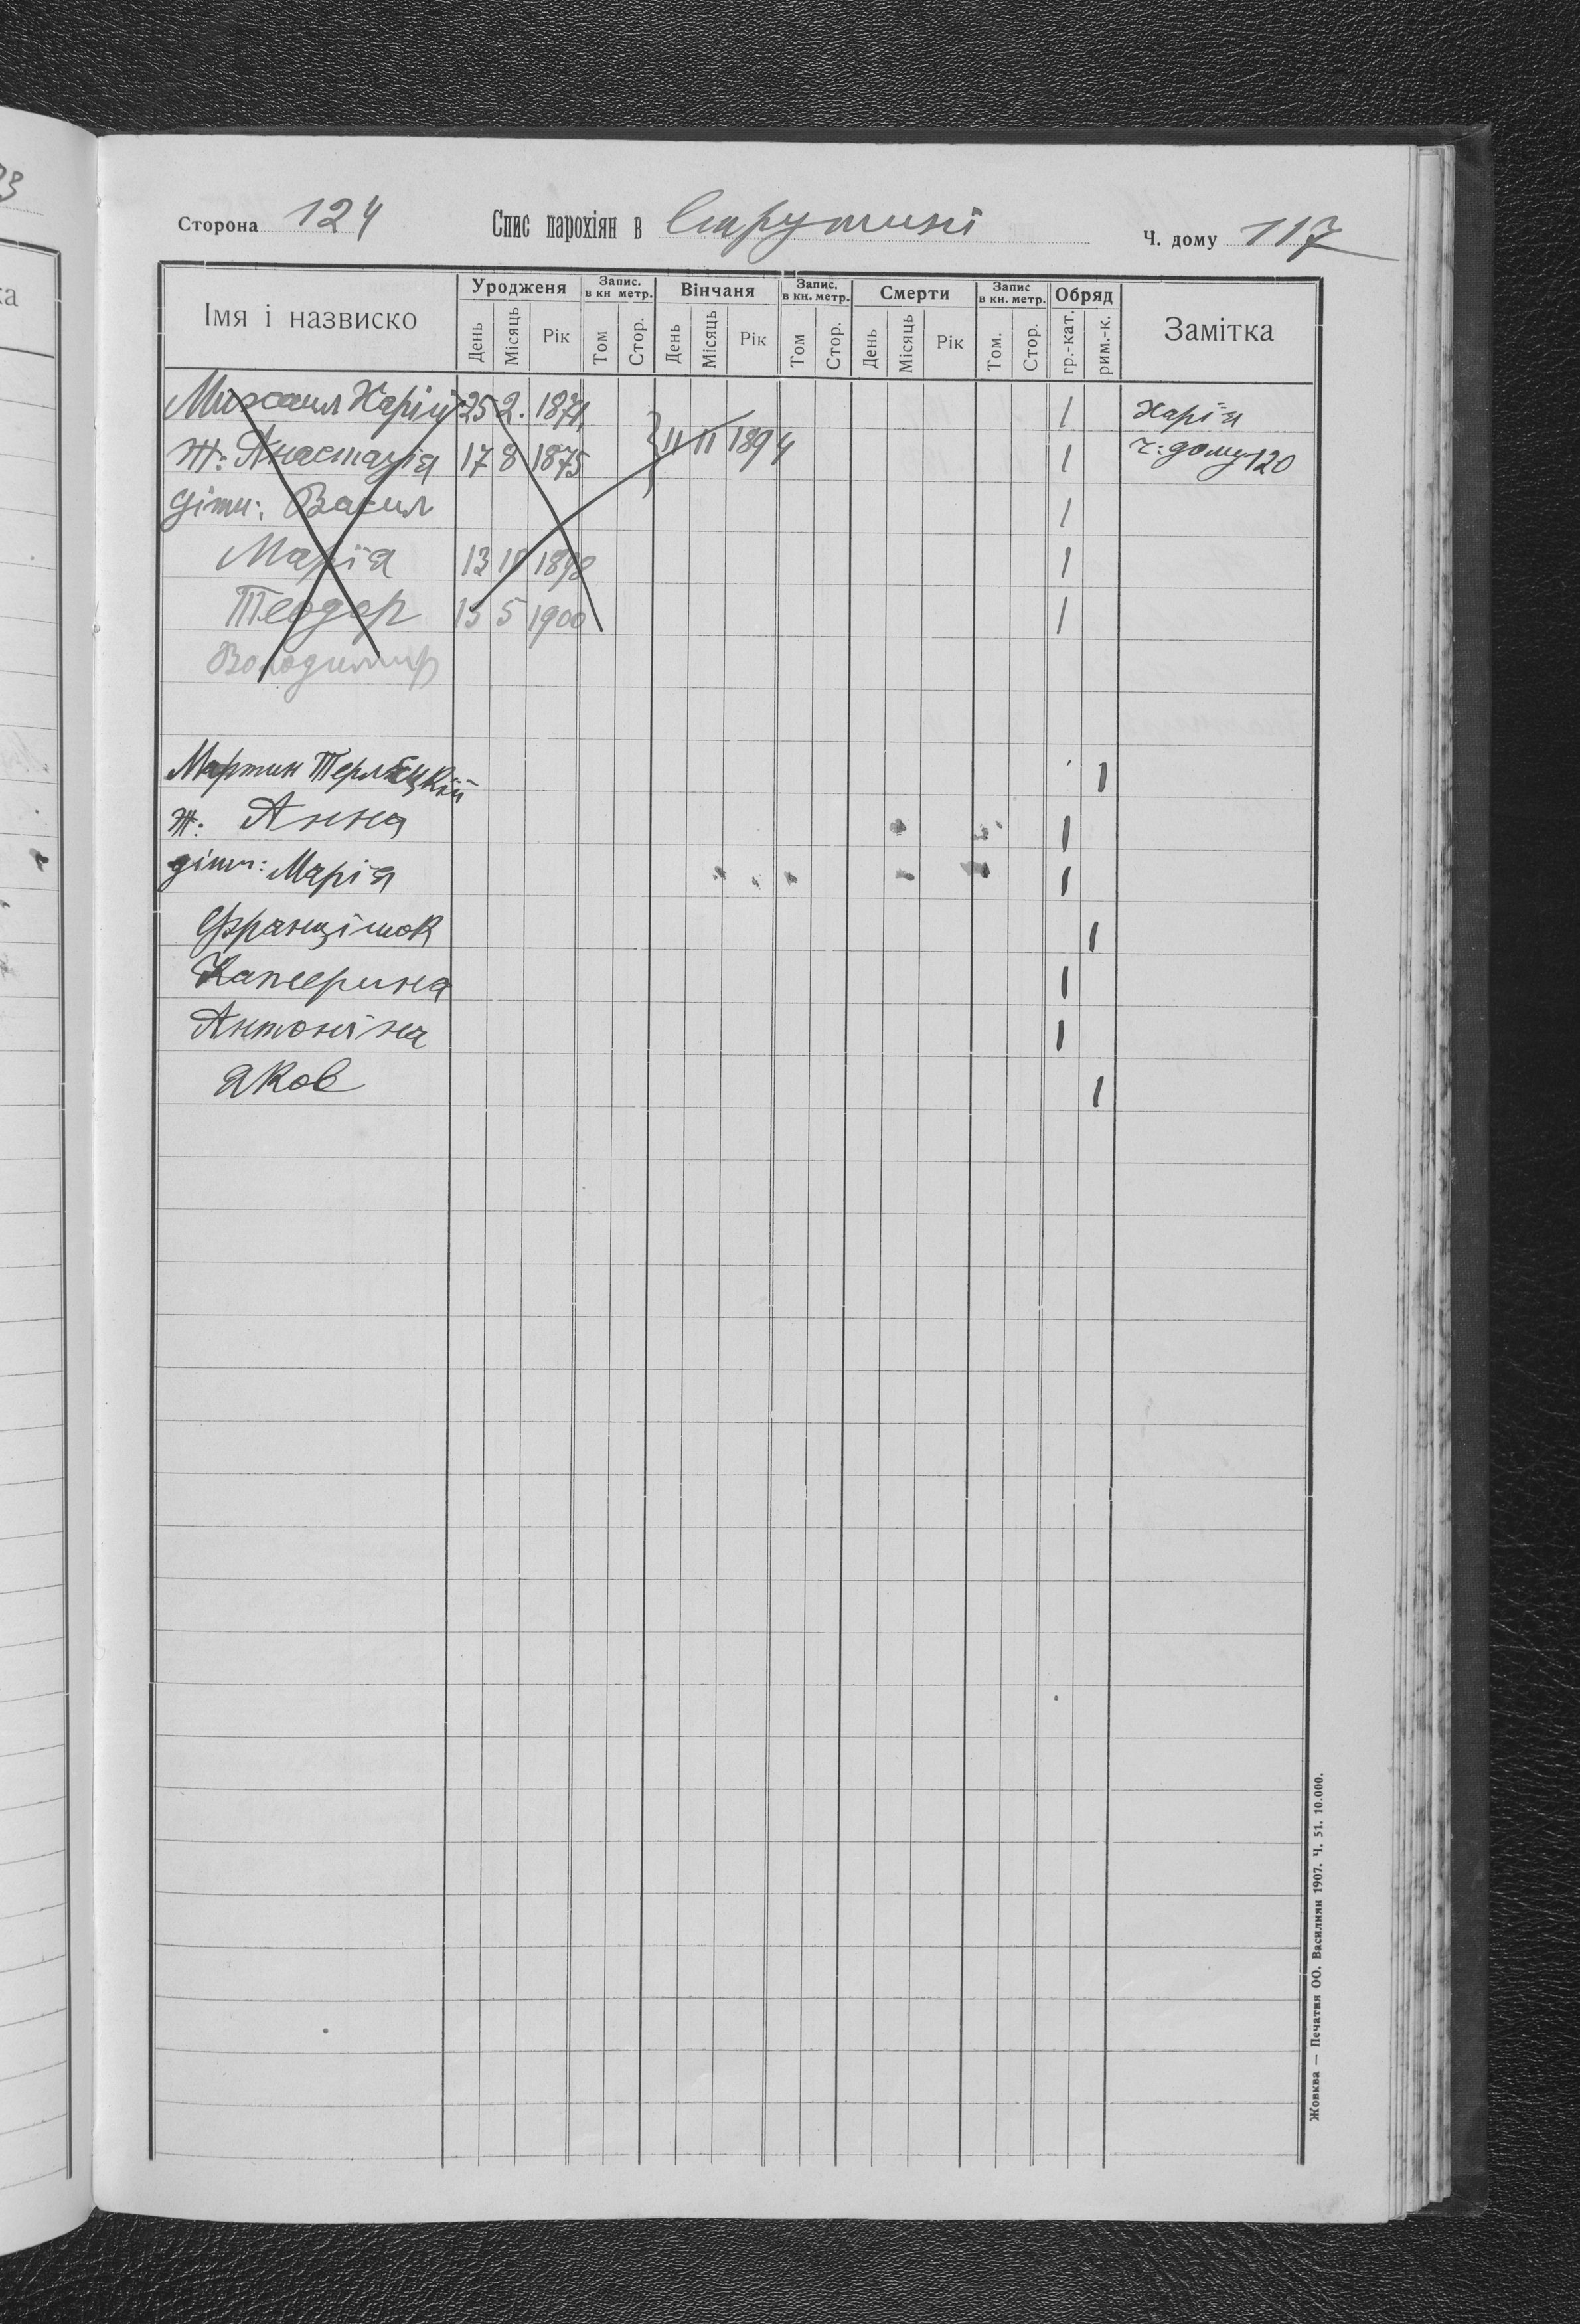 Сторона 124 Спис парохіян в Струтині Ч. дому 117
Імя і назвиско Уродженя Запис. в кн метр. Вінчаня Запис. в кн. метр. Смерти Запис в кн. метр. Обряд Замітка
День Місяць Рік Том Стор. День Місяць Рік Том Стор. День Місяць Рік Том. Стор. гр.-кат. рим.-к.
Михаил Харій 25 2. 1871, 1 Харія
ж: Анастазія 17 8 1875 11 11 1894 1 ч: дому 120
діти: Васил 1
Марія 13 10 1898 1
Теодор 15 5 1900 1
Володимир
Мартин Терлєцкій 1
ж: Анна 1
діти: Марія 1
Францішок 1
Катерина 1
Антоніна 1
Яков 1
Жовква — Печатня ОО. Василиян 1907. Ч. 51. 10.000.